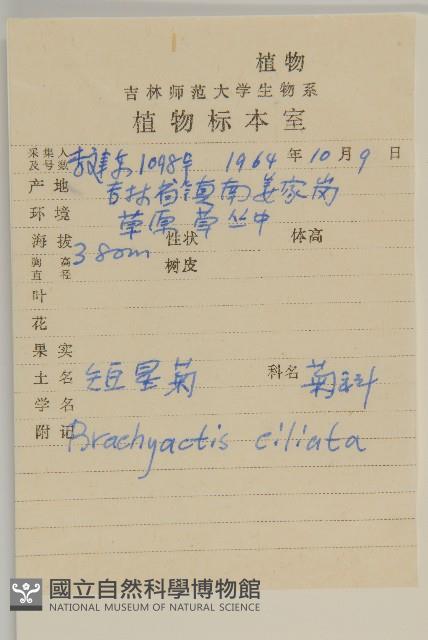 植物
吉林师范大学生物系
植物标本室
采集人及号数 李建东 1098号 1964年10月9日
产地 吉林省镇南姜家岗
环境 草原草丛中
海拔 380m 性状 体高
胸高直径 树皮
叶
花
果实
土名 短星菊 科名 菊科
学名
附记 Brachyactis ciliata
國立自然科學博物館
NATIONAL MUSEUM OF NATURAL SCIENCE